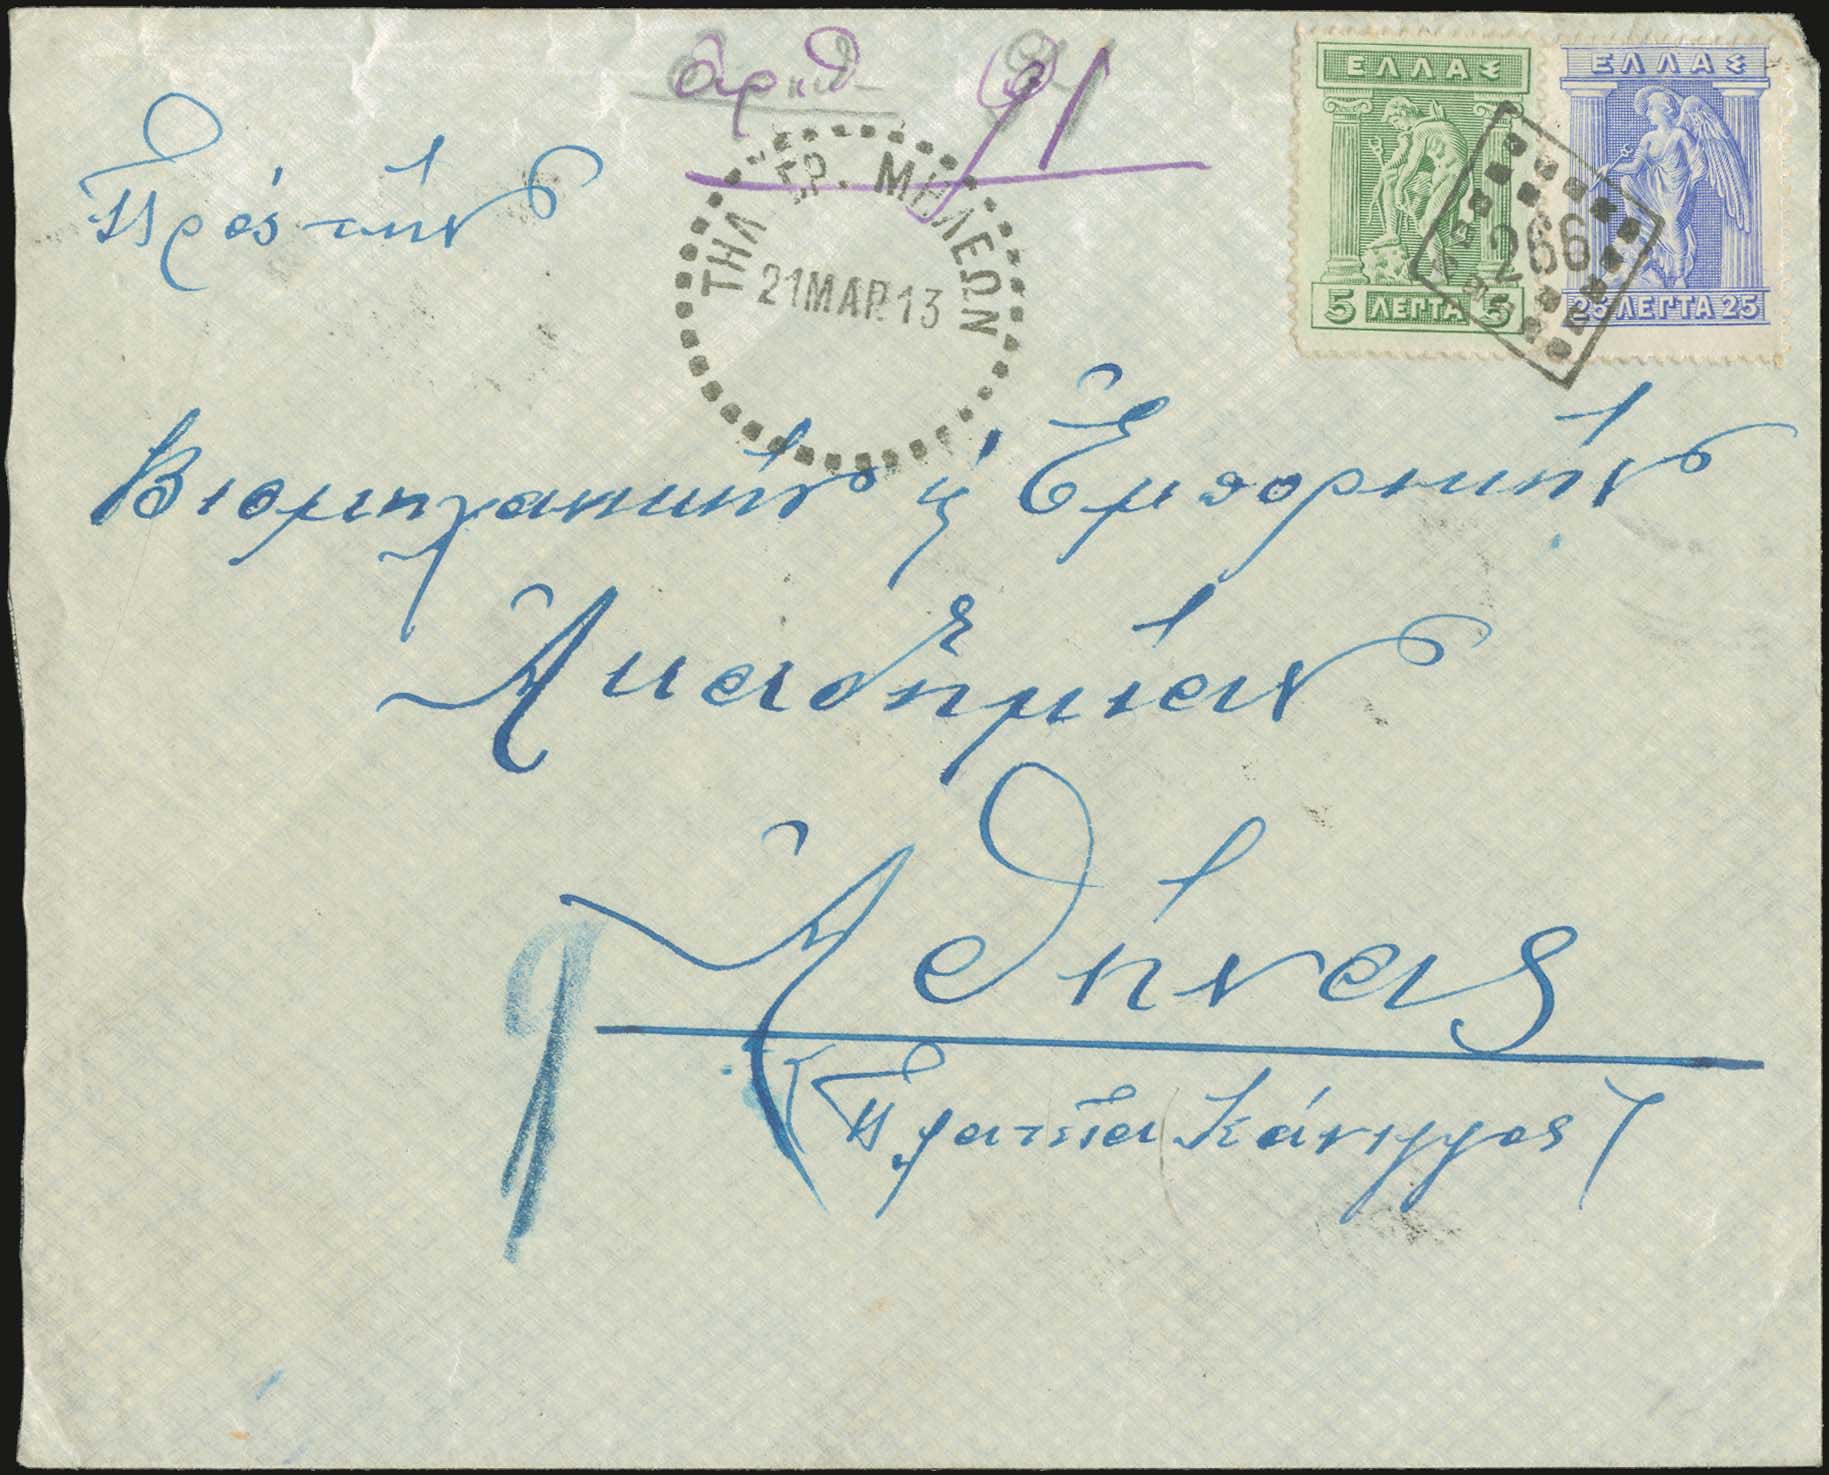 ἀριθ 91
ΕΛΛΑΣ
ΕΛΛΑΣ
5 ΛΕΠΤΑ 5
25 ΛΕΠΤΑ 25
266
ΤΗΛ ΓΡ. ΜΗΛΕΩΝ
21 ΜΑΡ. 13
Πρὸς τὴν
Βιομηχανικὴν ἢ Ἐμπορικὴν
Ἀκαδημίαν
Ἀθήνας
(Πλατεῖα Κάνιγγος)